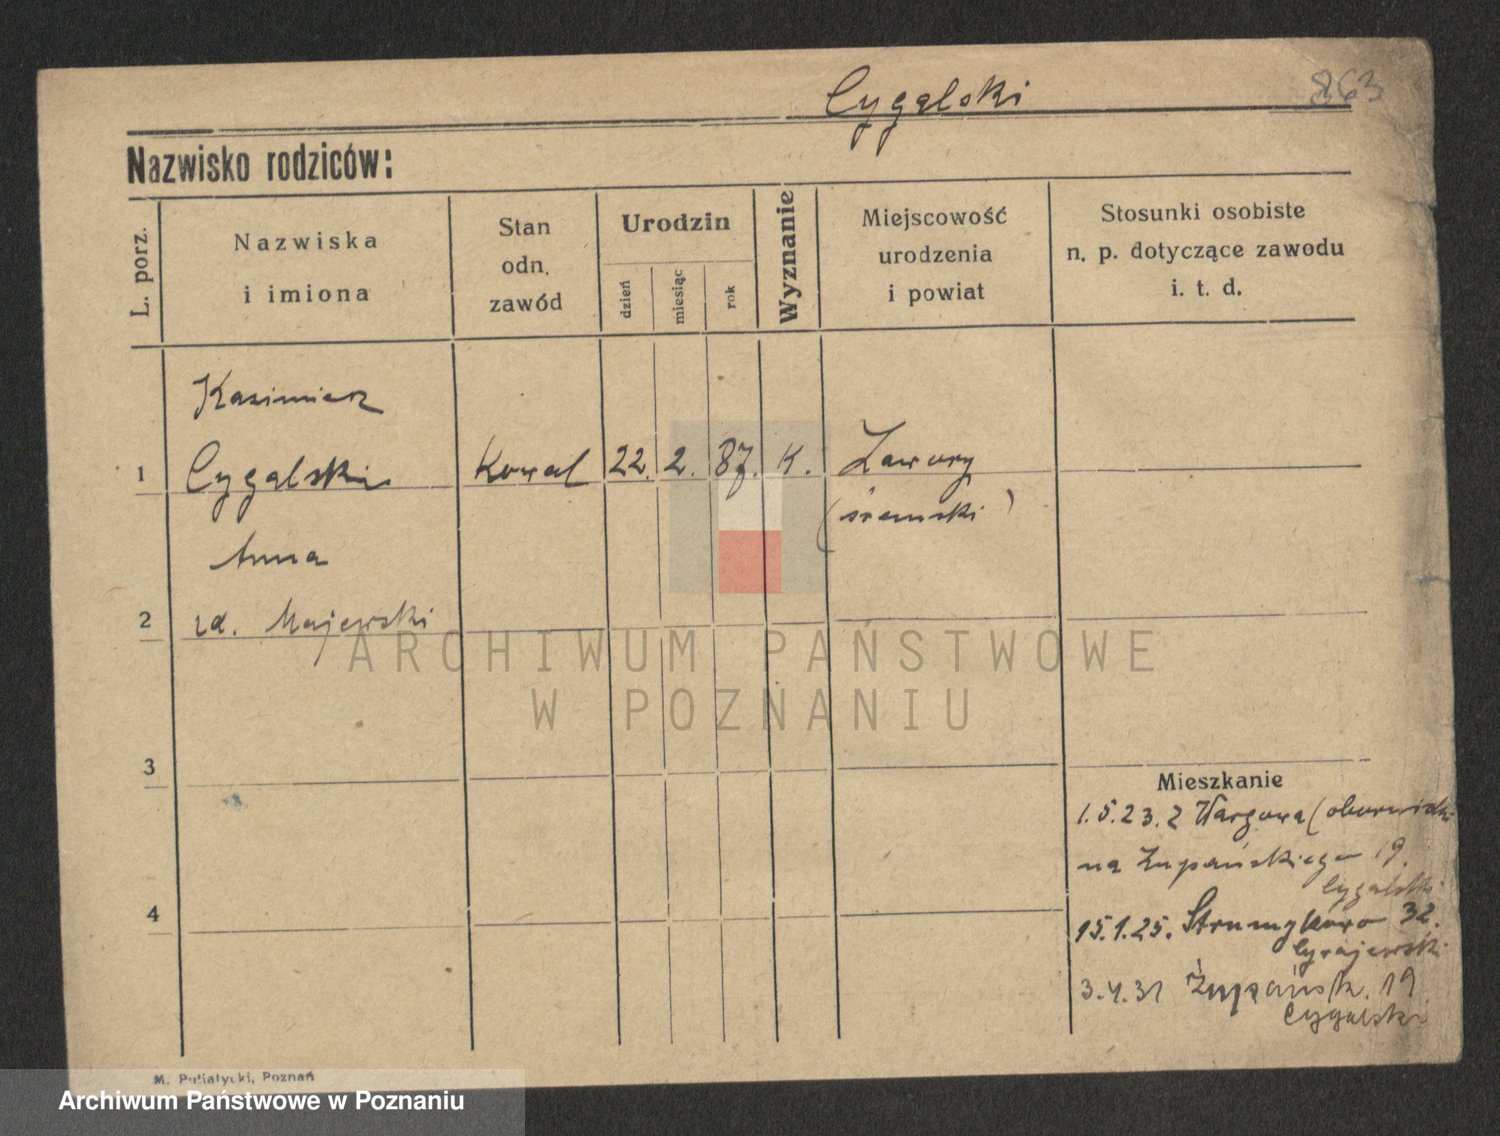 Cygalski 863
Nazwisko rodziców:
L. porz.
Nazwiska
i imiona
Stan
odn.
zawód
Urodzin
dzień
miesiąc
rok
Wyznanie
Miejscowość
urodzenia
i powiat
Stosunki osobiste
n. p. dotyczące zawodu
i. t. d.
Kazimierz
1 Cygalski Kowal 22. 2. 87. K. Zawory
(śremski)
Anna
2 zd. Majewski
ARCHIWUM PAŃSTWOWE
W POZNANIU
3
Mieszkanie
1.5.23. z Wargowa (obornicki
na Żupańskiego 19.
Cygalski
4
15.1.25. Strumykowa 32.
3.4.31 Żupańsk. 19.
Cygalski
M. Putiatycki, Poznań
Archiwum Państwowe w Poznaniu